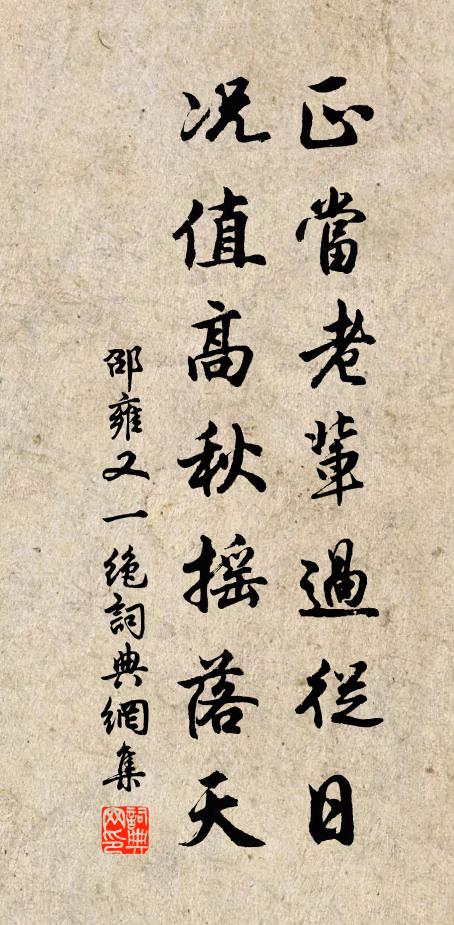 正當老輩過從日
況值高秋摇落天
邵雍又一絶詞典網集
詞典
网印